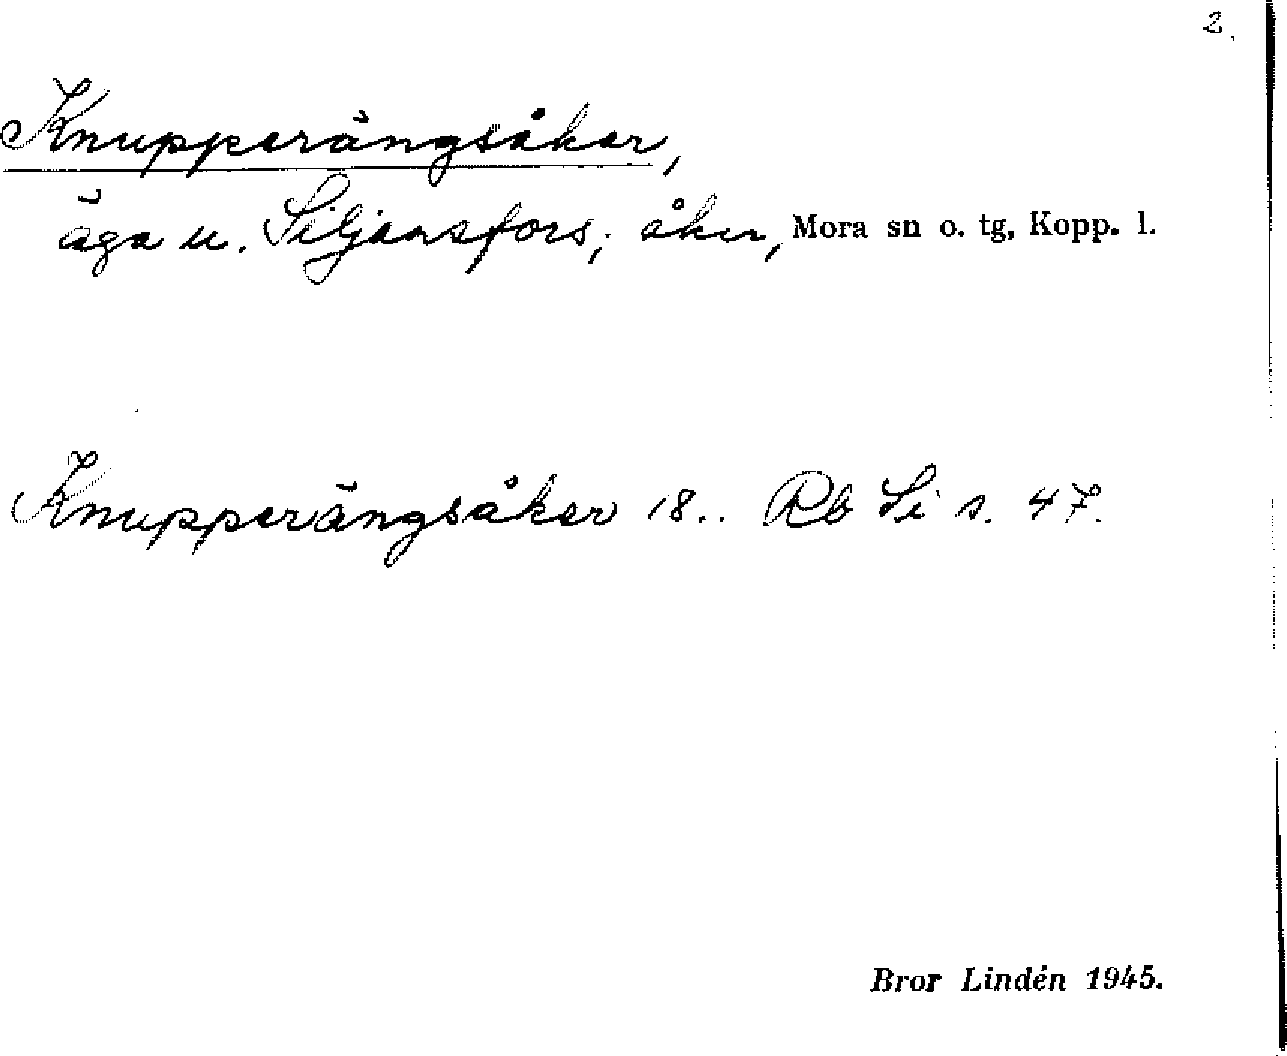 2.
Knupperängsåker,
äga u. Siljansfors; åker, Mora sn o. tg, Kopp. l.
Knupperängsåker 18.. Rb Si s. 47.
Bror Lindén 1945.